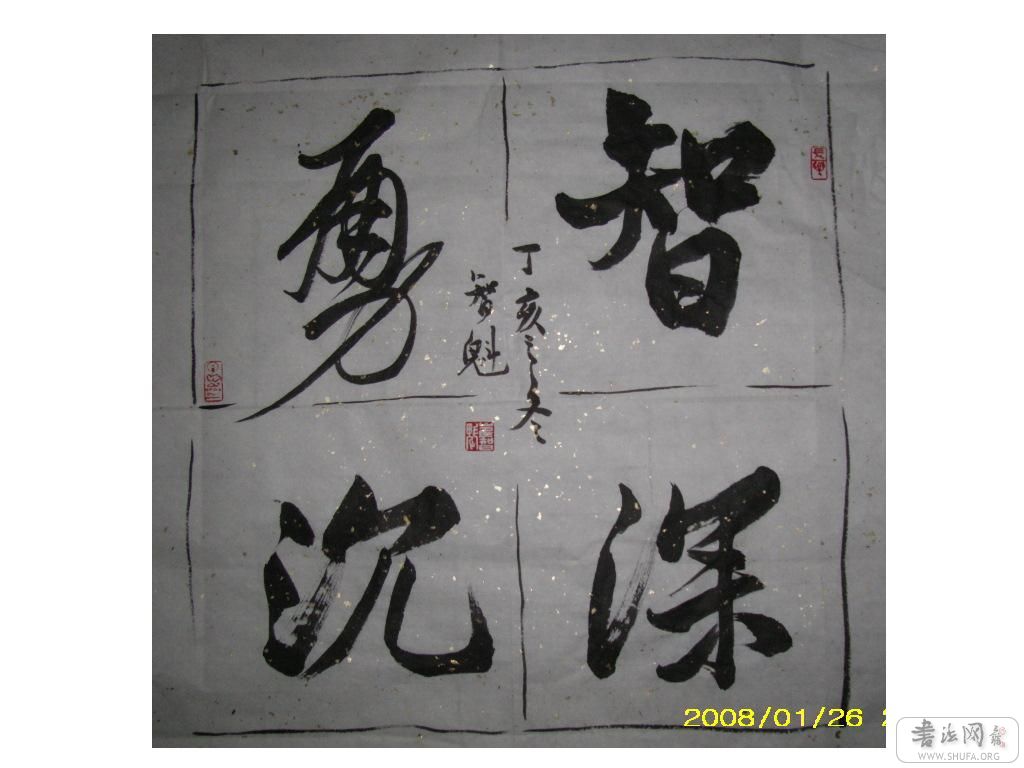 智勇
深沉
丁亥之冬
智魁
2008/01/26 2
書法网
WWW.SHUFA.ORG